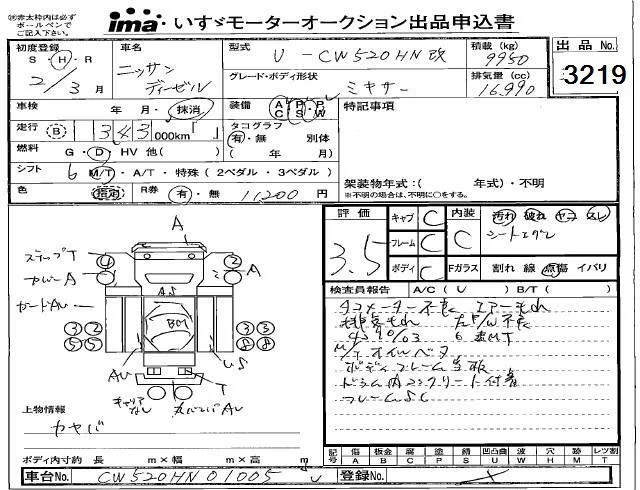 ㊟赤太枠内は必ず
ボールペンで
ご記入下さい。
ima いすゞモーターオークション出品申込書
初度登録
S・H・R
2/3月
車名
ニッサン
ディーゼル
型式
U-CW520HN改
グレード・ボディ形状
ミキサー
積載(kg)
9950
排気量(cc)
16,990
出品No.
3219
車検 年・月・抹消
装備 AC PS PW
特記事項
走行 B 343000km「 」
タコグラフ
有・無 別体
( 年 月)
燃料 G・D・HV 他( )
シフト 6 M/T・A/T・特殊(2ペダル・3ペダル)
架装物年式:( 年式)・不明
※不明の場合は、不明に○をする。
色 指定 R券 有・無 11200円
評価
3.5
キャブ C
フレーム C
ボディ C
内装 C
汚れ 破れ ヤコ スレ
Fガラス 割れ 線 点傷 イバリ
検査員報告 A/C(U) B/T( )
タコメーター不良 エアーもれ
排気もれ 左P/W不良
6速MT
M/T オイルベタ
ボディフレーム当板
ドラム内コンクリート付着
フレームSC
A
ステップT
カバーA
ガードAU
4
2
A
AS
BM
3
3
5
5
3
3
8
8
AU
US
T
キャリア
なし
カバンバAU
上物情報
カヤバ
ボディ内寸約 長 m×幅 m×高 m
記号 傷A 板金B 腐C 塗P 錆S 凹凸曲U 波W 穴H 跡M レツ割T
車台No. CW520HN01005
登録No.